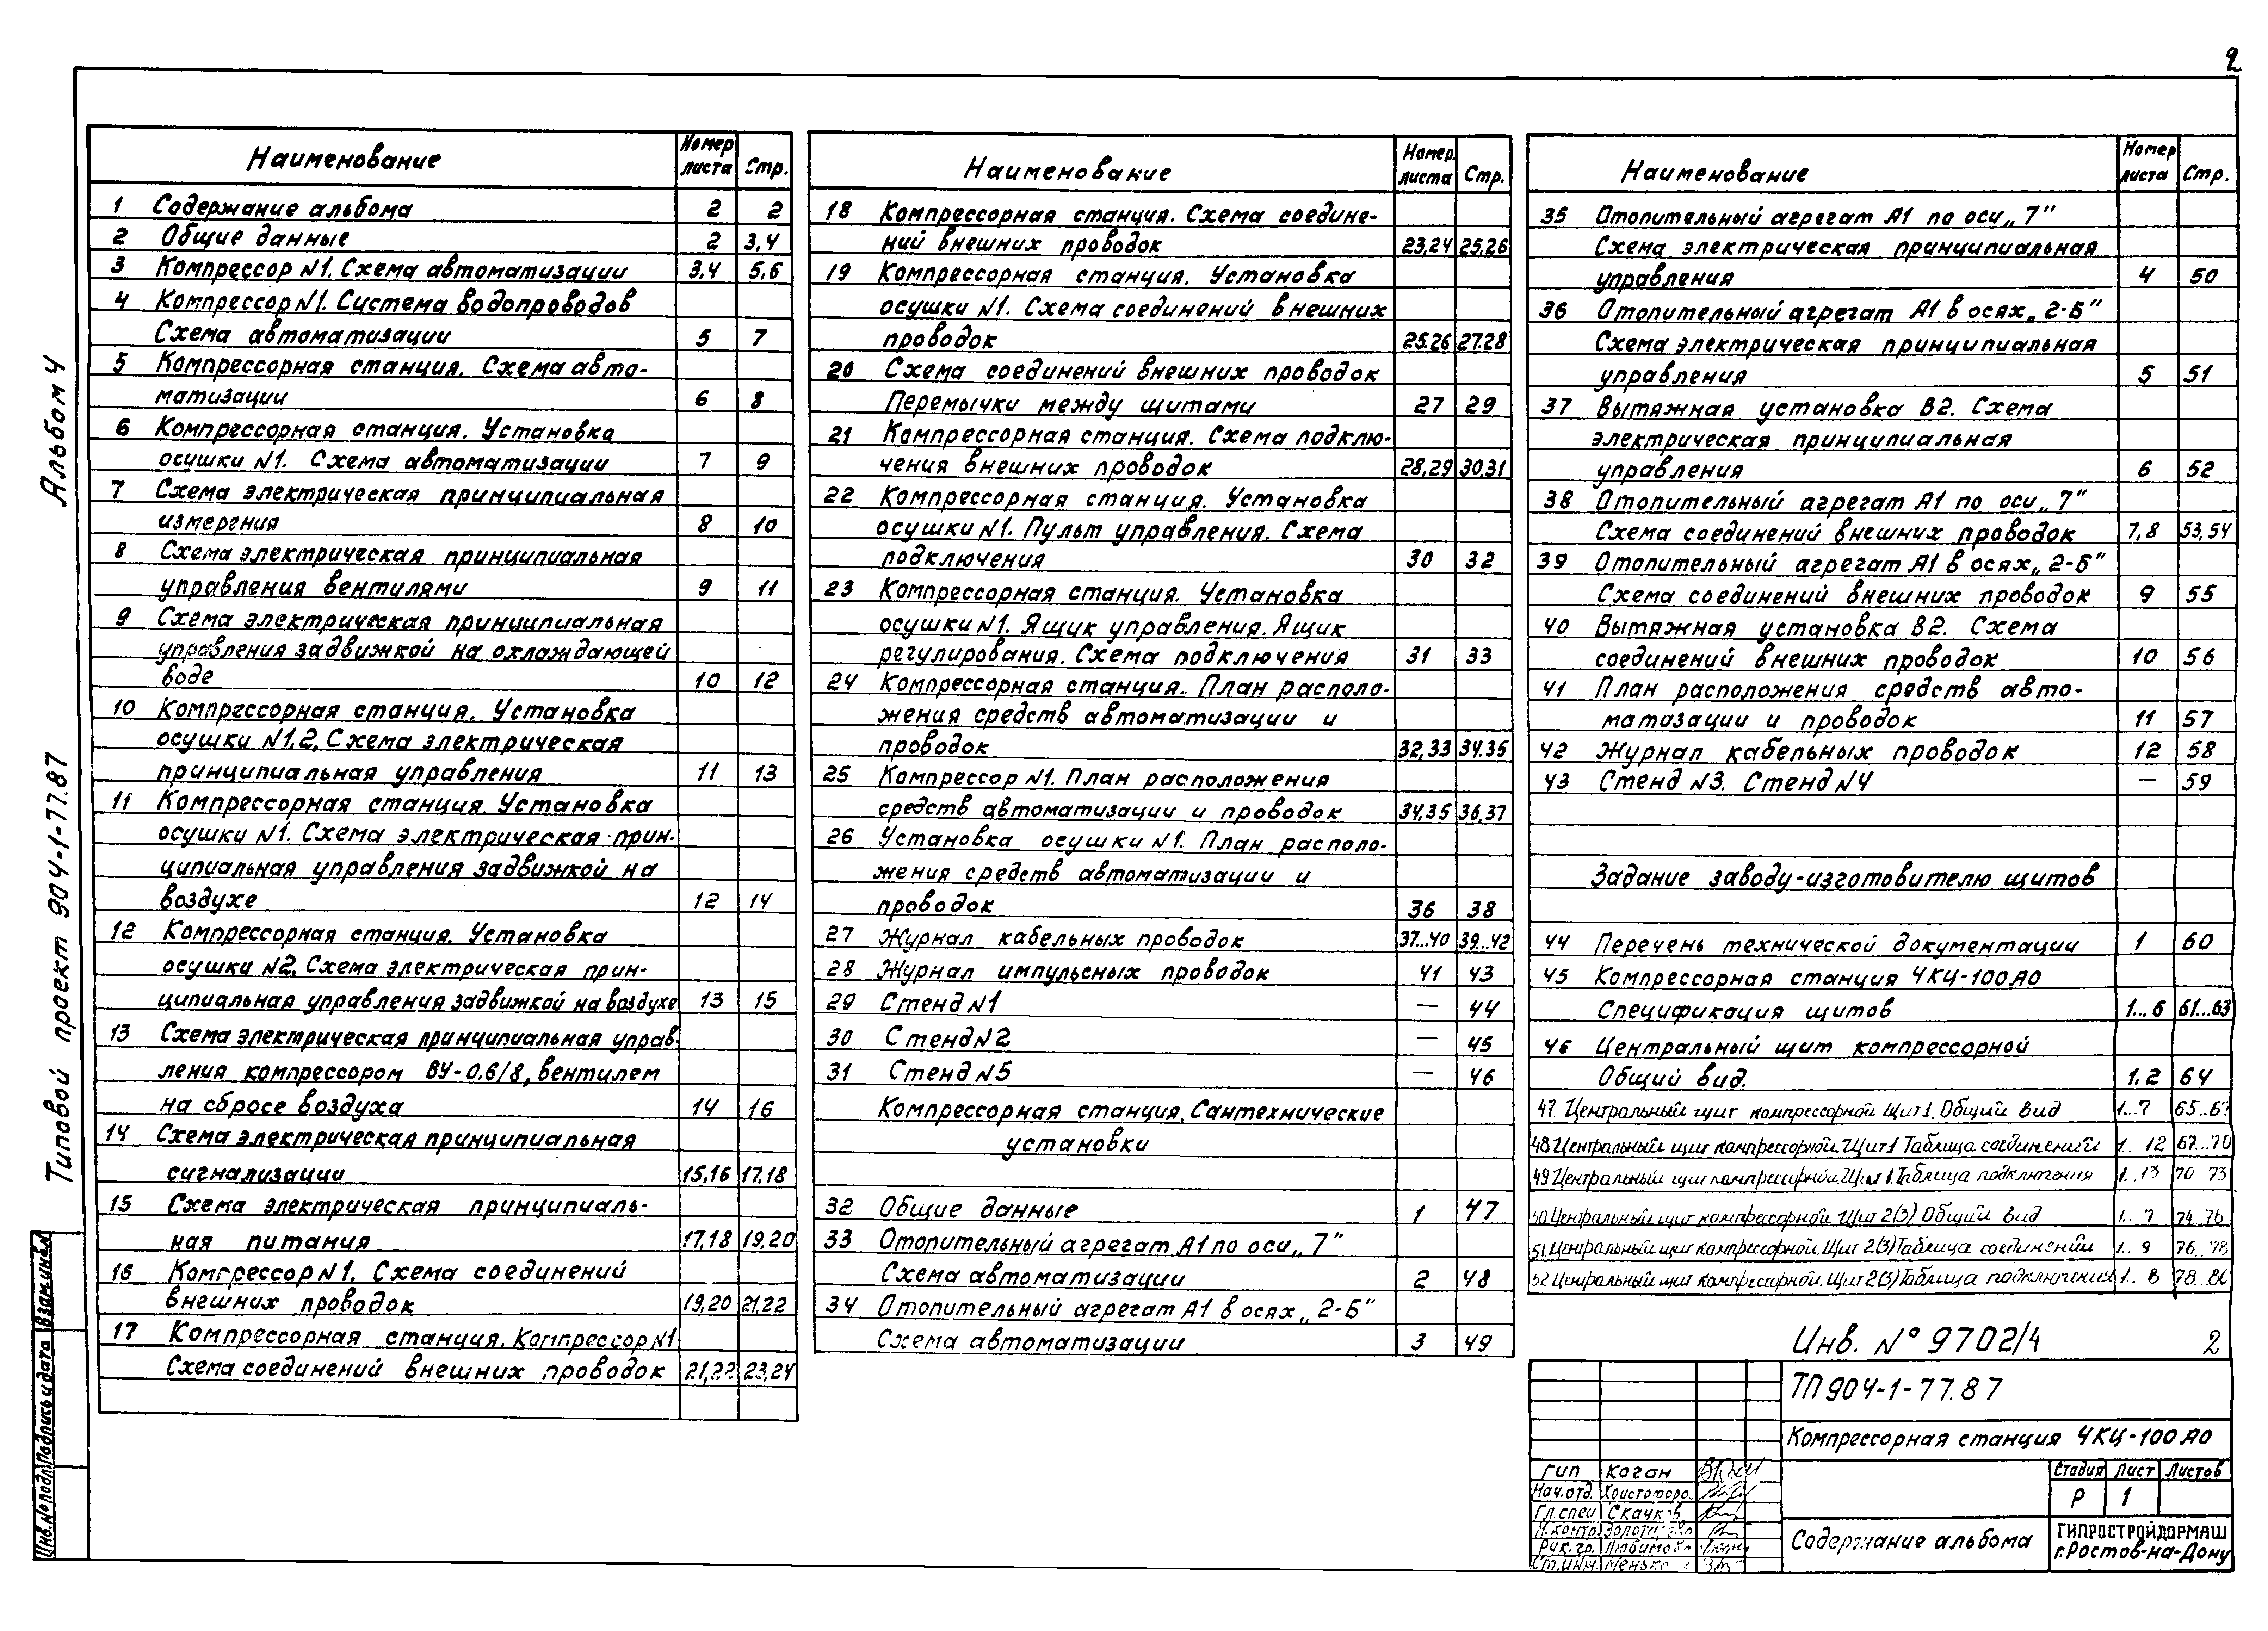 2
Альбом 4
Типовой проект 904-1-77.87
Инв. № подл. Подпись и дата Взам.инв.№
Наименование Номер листа Стр.
1 Содержание альбома 2 2
2 Общие данные 2 3,4
3 Компрессор №1. Схема автоматизации 3,4 5,6
4 Компрессор №1. Система водопроводов
Схема автоматизации 5 7
5 Компрессорная станция. Схема авто-
матизации 6 8
6 Компрессорная станция. Установка
осушки №1. Схема автоматизации 7 9
7 Схема электрическая принципиальная
измерения 8 10
8 Схема электрическая принципиальная
управления вентилями 9 11
9 Схема электрическая принципиальная
управления задвижкой на охлаждающей
воде 10 12
10 Компрессорная станция. Установка
осушки №1,2, Схема электрическая
принципиальная управления 11 13
11 Компрессорная станция. Установка
осушки №1. Схема электрическая прин-
ципиальная управления задвижкой на
воздухе 12 14
12 Компрессорная станция. Установка
осушки №2. Схема электрическая прин-
ципиальная управления задвижкой на воздухе 13 15
13 Схема электрическая принципиальная управ-
ления компрессором ВУ-0.6/8, вентилем
на сбросе воздуха 14 16
14 Схема электрическая принципиальная
сигнализации 15,16 17,18
15 Схема электрическая принципиаль-
ная питания 17,18 19,20
16 Компрессор №1. Схема соединений
внешних проводок 19,20 21,22
17 Компрессорная станция. Компрессор №1
Схема соединений внешних проводок 21,22 23,24
Наименование Номер. листа Стр.
18 Компрессорная станция. Схема соедине-
ний внешних проводок 23,24 25,26
19 Компрессорная станция. Установка
осушки №1. Схема соединений внешних
проводок 25.26 27.28
20 Схема соединений внешних проводок
Перемычки между щитами 27 29
21 Компрессорная станция. Схема подклю-
чения внешних проводок 28,29 30,31
22 Компрессорная станция. Установка
осушки №1. Пульт управления. Схема
подключения 30 32
23 Компрессорная станция. Установка
осушки №1. Ящик управления. Ящик
регулирования. Схема подключения 31 33
24 Компрессорная станция. План располо-
жения средств автоматизации и
проводок 32,33 34.35
25 Компрессор №1. План расположения
средств автоматизации и проводок 34,35 36,37
26 Установка осушки №1. План располо-
жения средств автоматизации и
проводок 36 38
27 Журнал кабельных проводок 37...40 39...42
28 Журнал импульсных проводок 41 43
29 Стенд №1 — 44
30 Стенд №2 — 45
31 Стенд №5 — 46
Компрессорная станция. Сантехнические
установки
32 Общие данные 1 47
33 Отопительный агрегат А1 по оси „7"
Схема автоматизации 2 48
34 Отопительный агрегат А1 в осях „2-Б"
Схема автоматизации 3 49
Наименование Номер листа Стр.
35 Отопительный агрегат А1 по оси „7"
Схема электрическая принципиальная
управления 4 50
36 Отопительный агрегат А1 в осях „2-Б"
Схема электрическая принципиальная
управления 5 51
37 Вытяжная установка В2. Схема
электрическая принципиальная
управления 6 52
38 Отопительный агрегат А1 по оси „7"
Схема соединений внешних проводок 7,8 53,54
39 Отопительный агрегат А1 в осях „2-Б"
Схема соединений внешних проводок 9 55
40 Вытяжная установка В2. Схема
соединений внешних проводок 10 56
41 План расположения средств авто-
матизации и проводок 11 57
42 Журнал кабельных проводок 12 58
43 Стенд №3. Стенд №4 — 59
Задание заводу-изготовителю щитов
44 Перечень технической документации 1 60
45 Компрессорная станция 4КЦ-100А0
Спецификация щитов 1...6 61...63
46 Центральный щит компрессорной
Общий вид. 1,2 64
47. Центральный щит компрессорной Щит 1. Общий вид 1...7 65...67
48 Центральный щит компрессорной. Щит 1 Таблица соединений 1.. 12 67...70
49 Центральный щит компрессорной. Щит 1. Таблица подключения 1...13 70 73
50 Центральный щит компрессорной Щит 2(3). Общий вид 1.. 7 74...76
51. Центральный щит компрессорной. Щит 2(3) Таблица соединений 1.. 9 76...78
52 Центральный щит компрессорной. Щит 2(3) Таблица подключения 1...8
Инв. № 9702/4 2
ТП 904-1-77.87
Компрессорная станция 4КЦ-100А0
ГИП Коган
Нач.отд.
Гл.спец Скачков
Н.контр.
Рук.гр.
Ст.инж.
Стадия Лист Листов
Р 1
Содержание альбома
ГИПРОСТРОЙДОРМАШ
г.Ростов-на-Дону